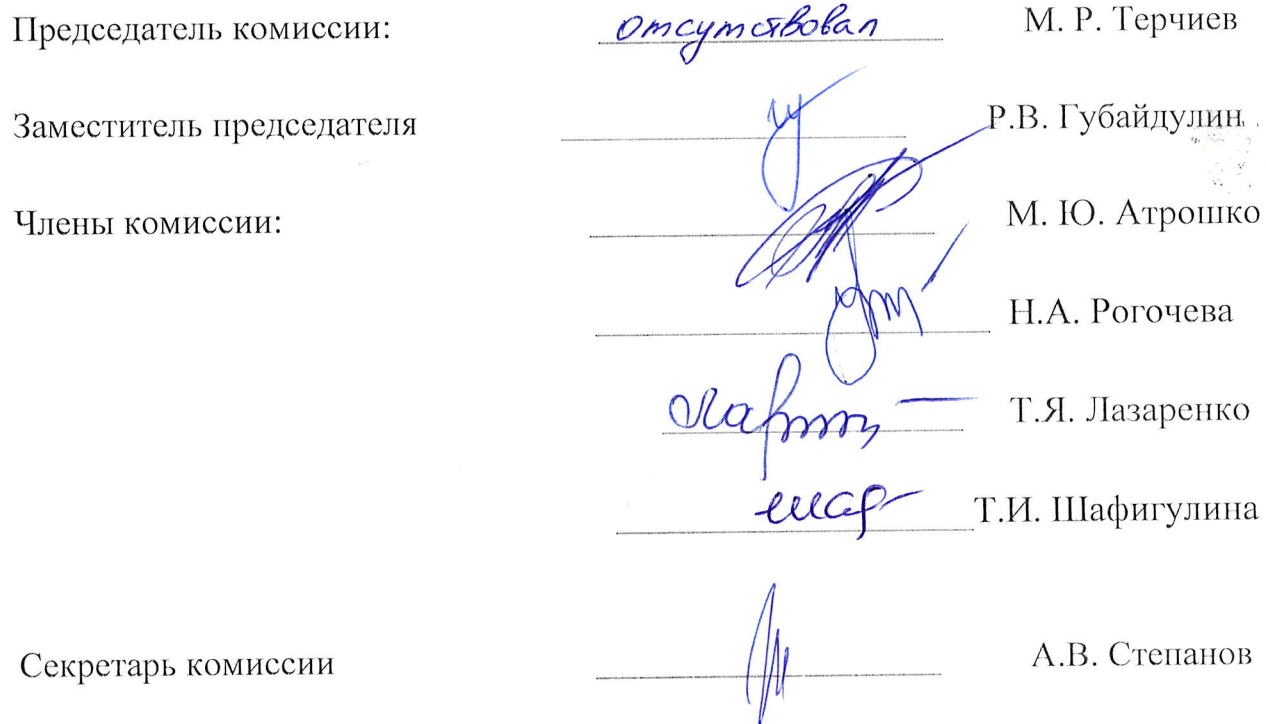 Председатель комиссии: отсутствовал М. Р. Терчиев
Заместитель председателя Р.В. Губайдулин
Члены комиссии: М. Ю. Атрошко
Н.А. Рогочева
Т.Я. Лазаренко
Т.И. Шафигулина
Секретарь комиссии А.В. Степанов